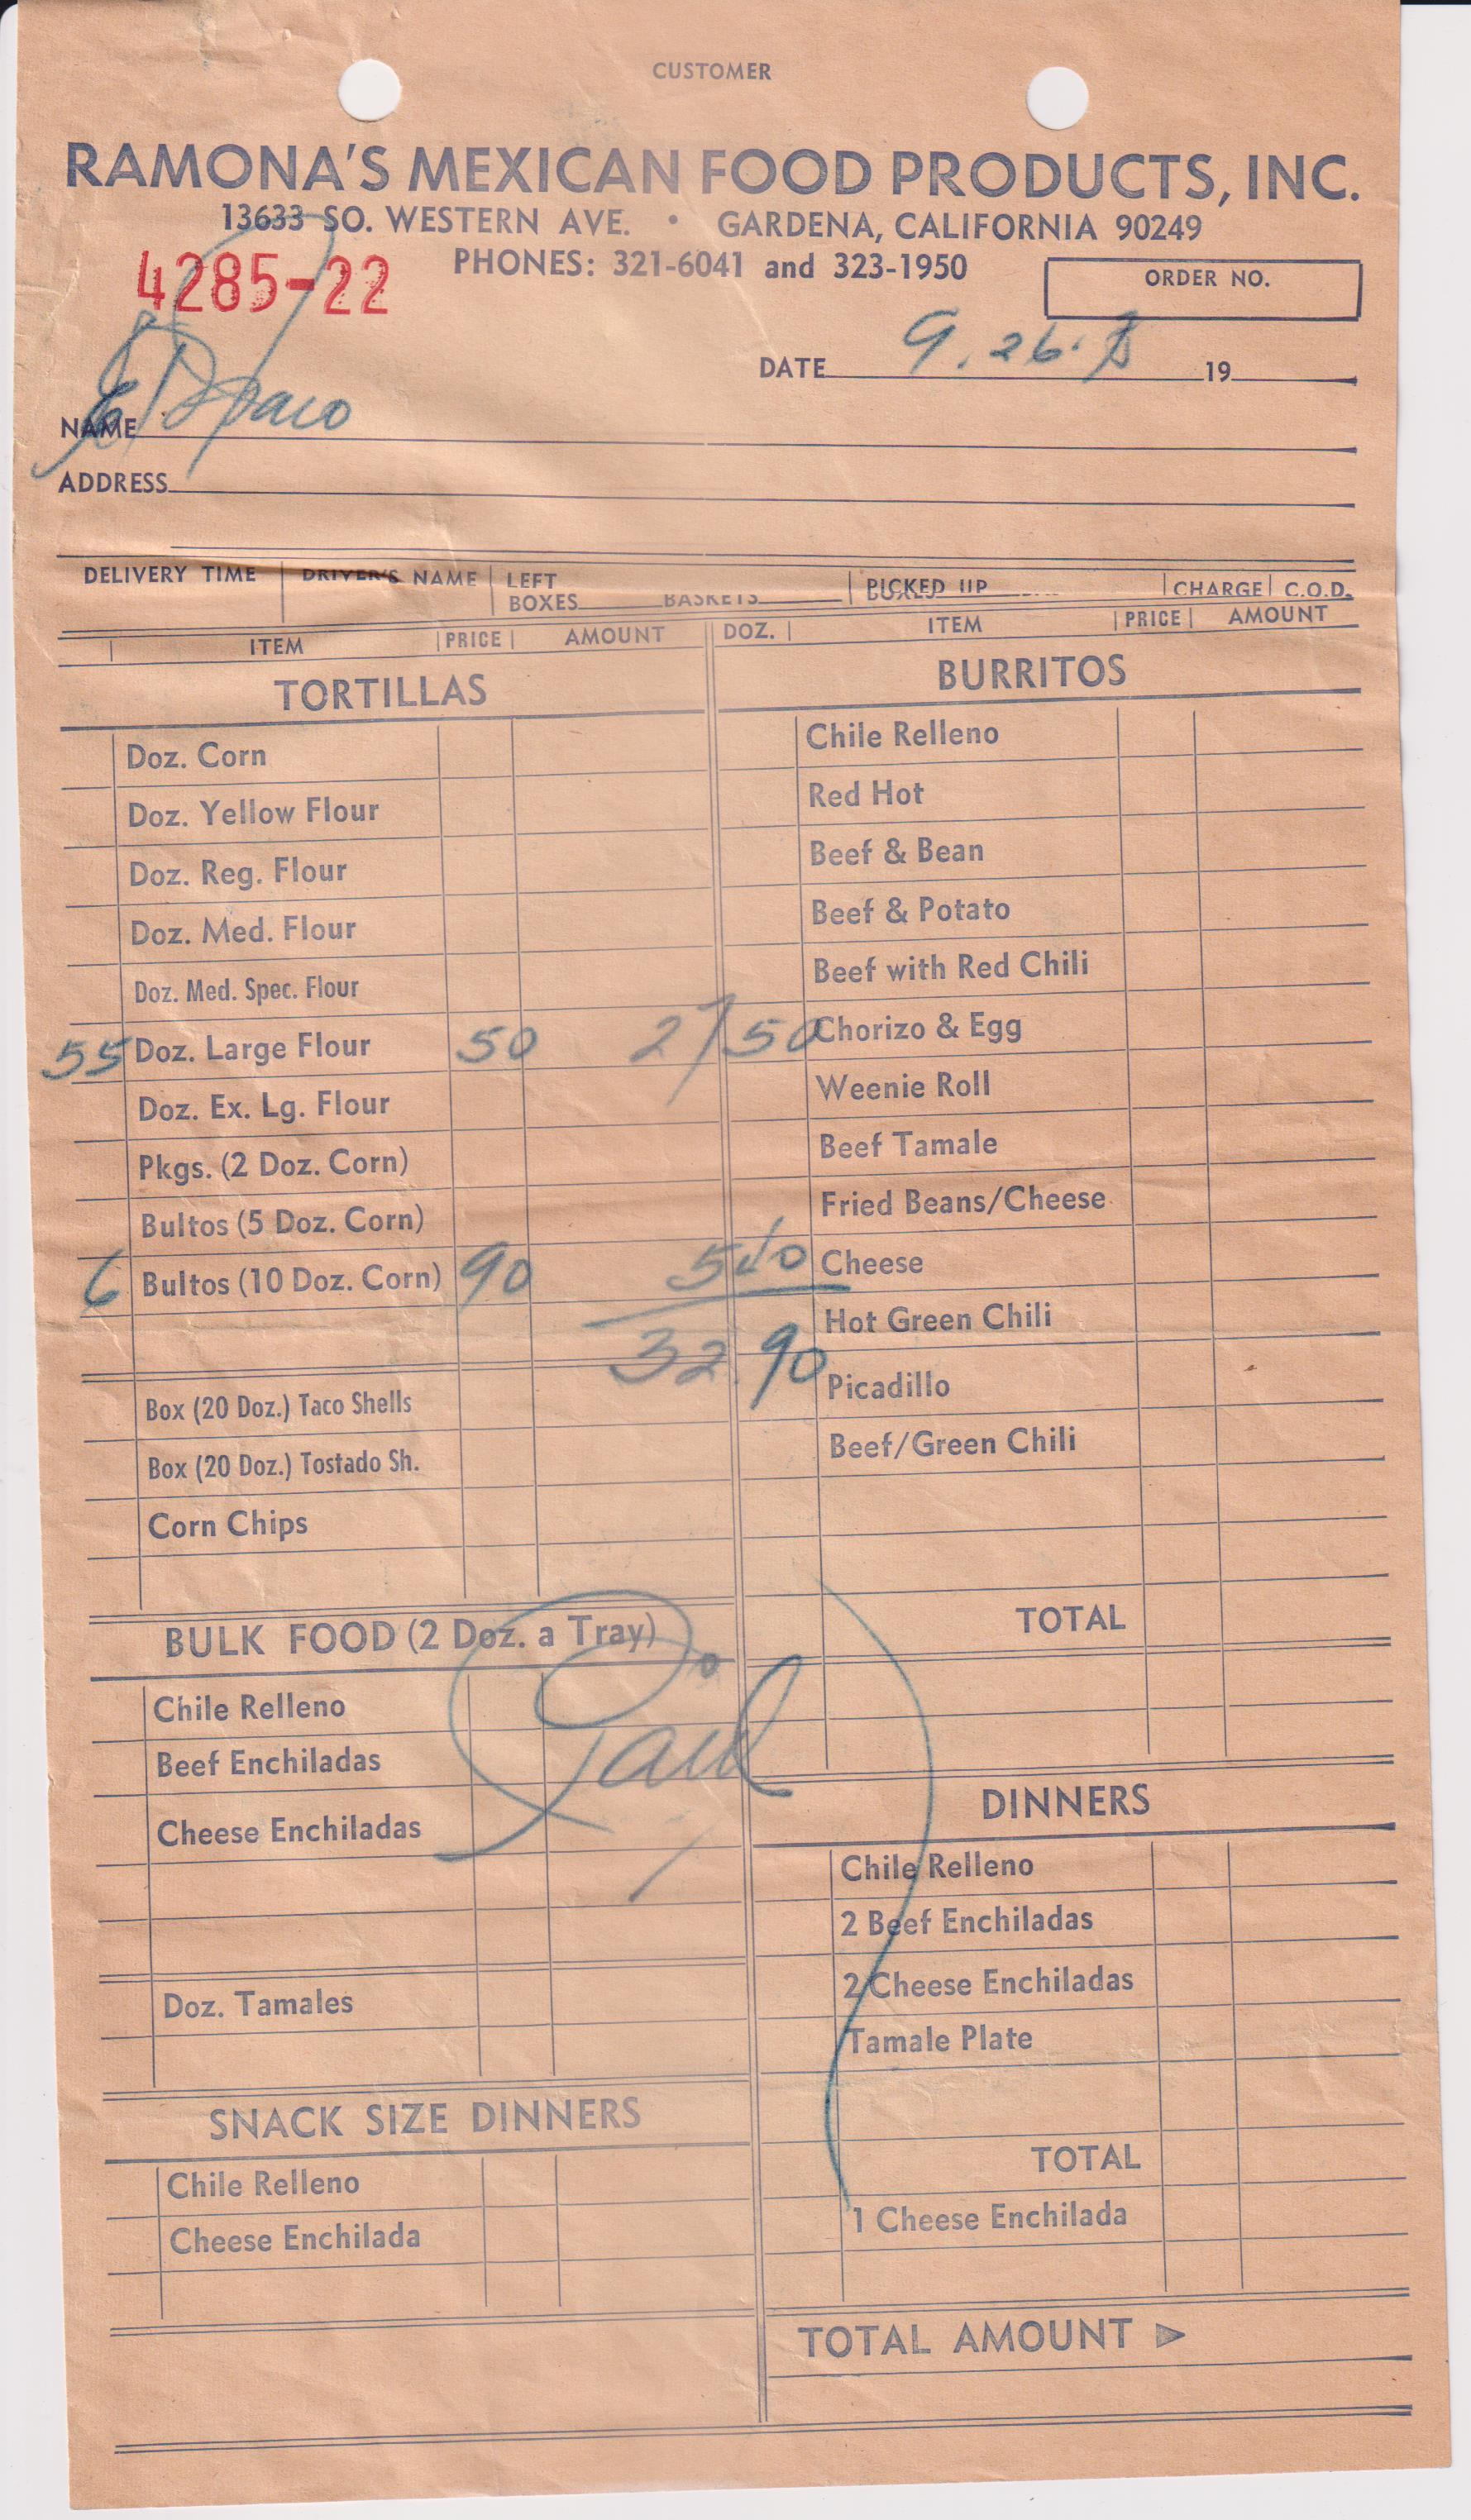 CUSTOMER
RAMONA'S MEXICAN FOOD PRODUCTS, INC.
13633 SO. WESTERN AVE. • GARDENA, CALIFORNIA 90249
4285-22 PHONES: 321-6041 and 323-1950
ORDER NO.
DATE 9.26. 19
NAME El Paco
ADDRESS
DELIVERY TIME DRIVER'S NAME LEFT PICKED UP CHARGE C.O.D.
BOXES BASKETS BOXES
ITEM PRICE AMOUNT DOZ. ITEM PRICE AMOUNT
TORTILLAS
Doz. Corn
Doz. Yellow Flour
Doz. Reg. Flour
Doz. Med. Flour
Doz. Med. Spec. Flour
55 Doz. Large Flour 50 27 50
Doz. Ex. Lg. Flour
Pkgs. (2 Doz. Corn)
Bultos (5 Doz. Corn)
6 Bultos (10 Doz. Corn) 90 5 40
32.90
Box (20 Doz.) Taco Shells
Box (20 Doz.) Tostado Sh.
Corn Chips
BULK FOOD (2 Doz. a Tray)
Chile Relleno
Beef Enchiladas
Cheese Enchiladas
Paid
Doz. Tamales
SNACK SIZE DINNERS
Chile Relleno
Cheese Enchilada
BURRITOS
Chile Relleno
Red Hot
Beef & Bean
Beef & Potato
Beef with Red Chili
Chorizo & Egg
Weenie Roll
Beef Tamale
Fried Beans/Cheese
Cheese
Hot Green Chili
Picadillo
Beef/Green Chili
TOTAL
DINNERS
Chile Relleno
2 Beef Enchiladas
2 Cheese Enchiladas
Tamale Plate
TOTAL
1 Cheese Enchilada
TOTAL AMOUNT ➤